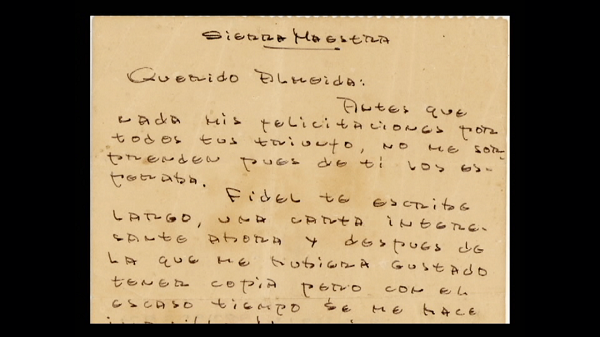 Sierra Maestra
Querido Almeida:
Antes que
nada mis felicitaciones por
todos tus triunfo, no me sor
prenden pues de ti los es-
peraba.
Fidel te escribe
largo, una carta intere-
sante ahora y despues de
la que me hubiera gustado
tener copia pero con el
escaso tiempo se me hace